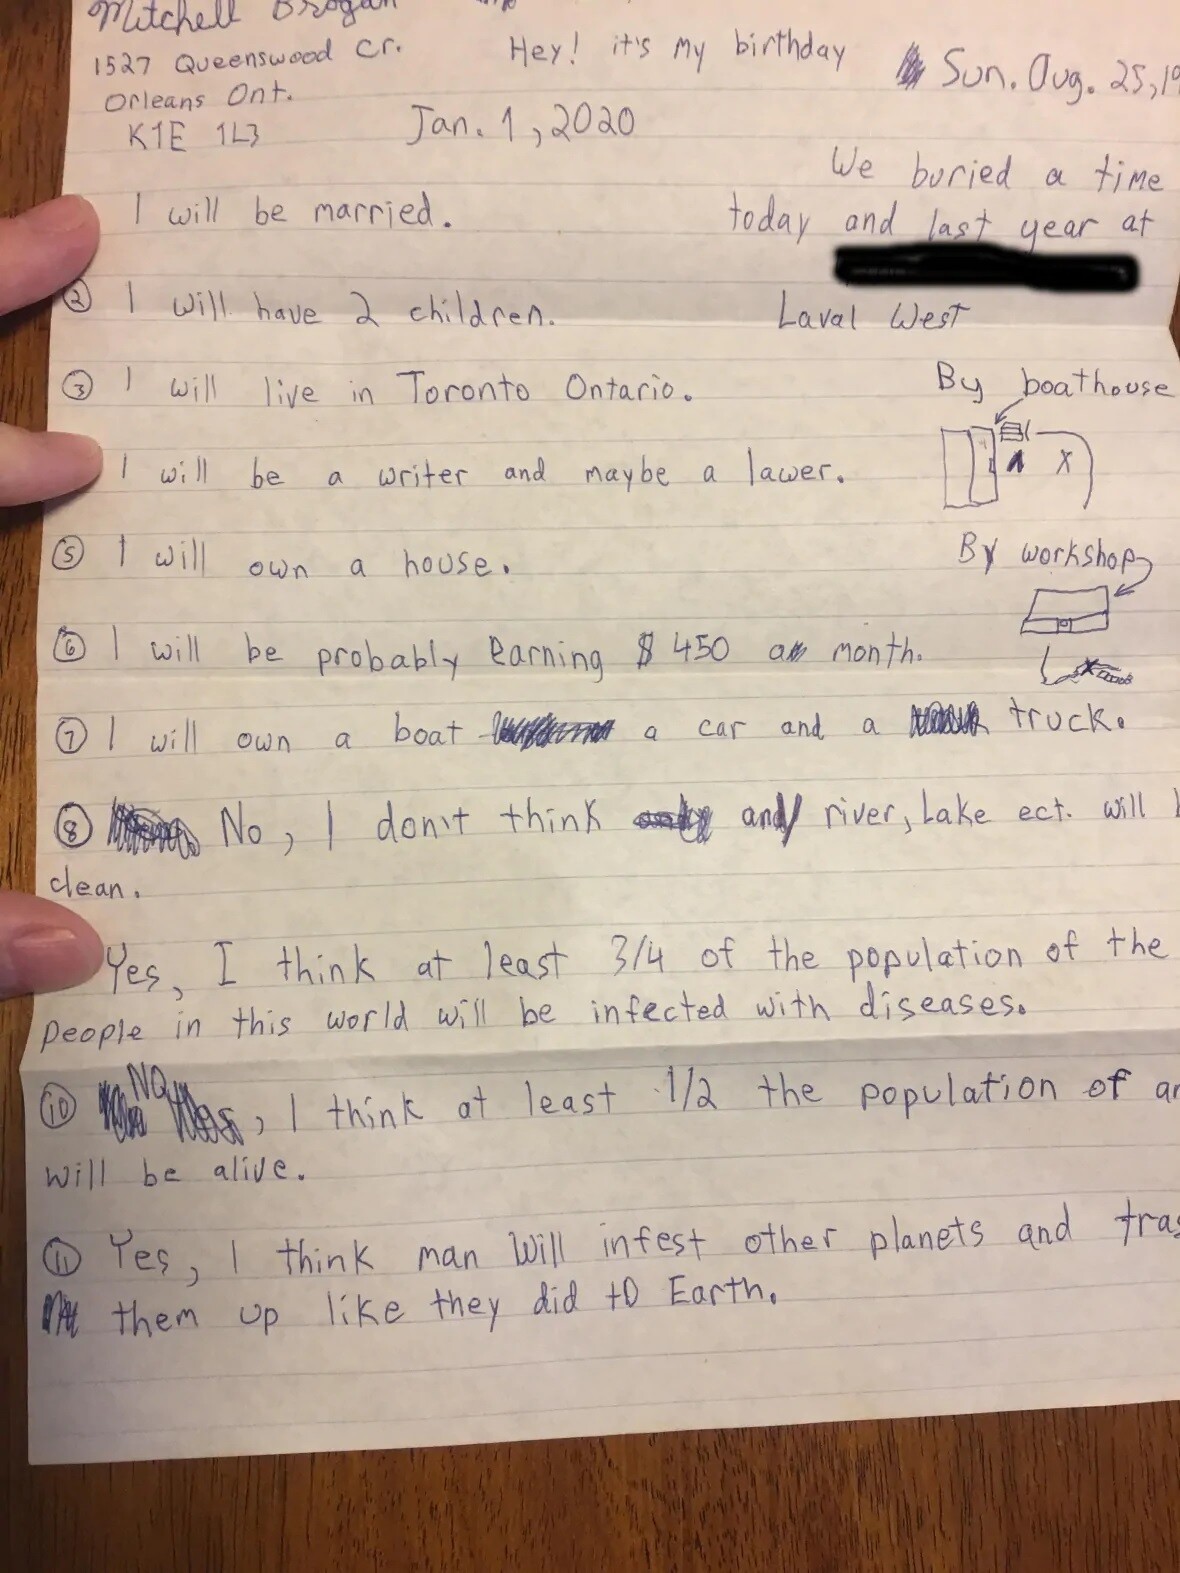 Mitchell Brogan
1527 Queenswood Cr.
Orleans Ont.
K1E 1L3
Hey! it's my birthday
Jan. 1, 2020
Sun. Aug. 25, 19
We buried a time
today and last year at
Laval West
By boathouse
X
By workshop
I will be married.
② I will have 2 children.
③ I will live in Toronto Ontario.
I will be a writer and maybe a lawer.
⑤ I will own a house.
⑥ I will be probably earning $450 a month.
⑦ I will own a boat a car and a truck.
⑧ No, I don't think and river, Lake ect. will
clean.
Yes, I think at least 3/4 of the population of the
people in this world will be infected with diseases.
⑩ No, I think at least 1/2 the population of
will be alive.
⑪ Yes, I think man will infest other planets and
them up like they did to Earth.